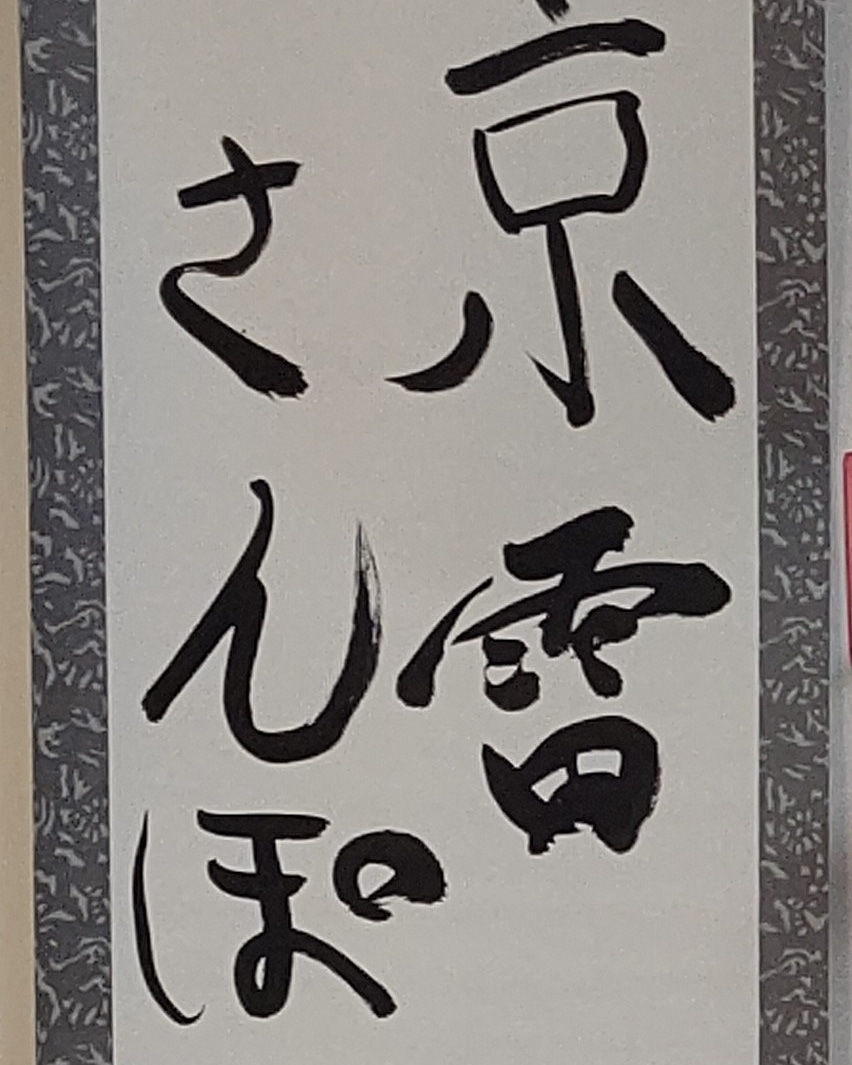 京雷
さんぽ